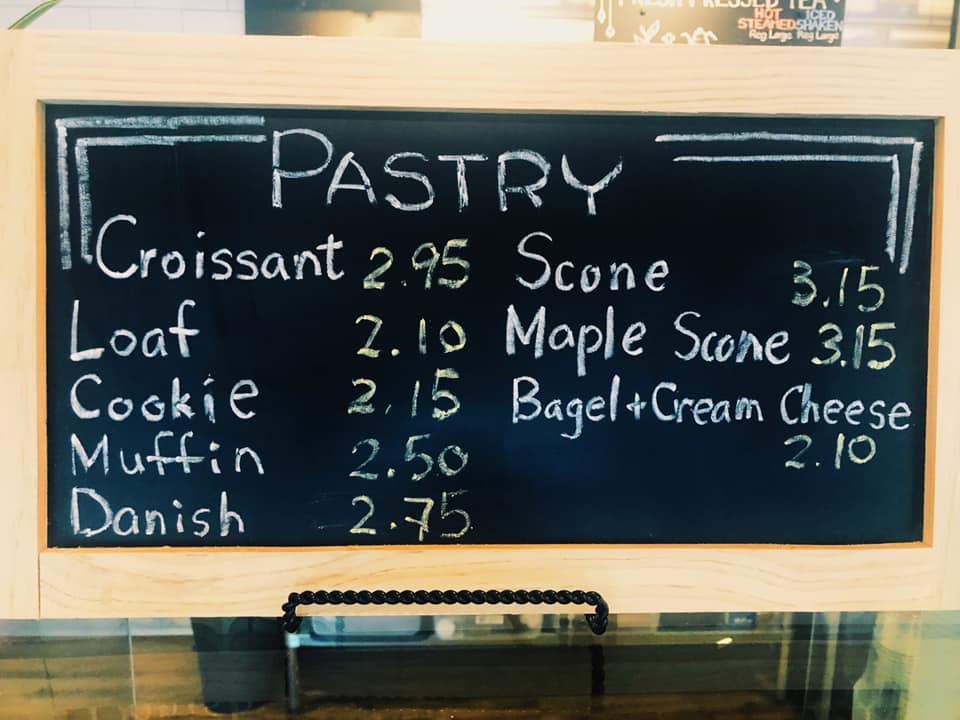 FRESH PRESSED TEA
HOT ICED
STEAMED SHAKEN
Reg Large Reg Large
PASTRY
Croissant 2.95
Loaf 2.10
Cookie 2.15
Muffin 2.50
Danish 2.75
Scone 3.15
Maple Scone 3.15
Bagel + Cream Cheese
2.10